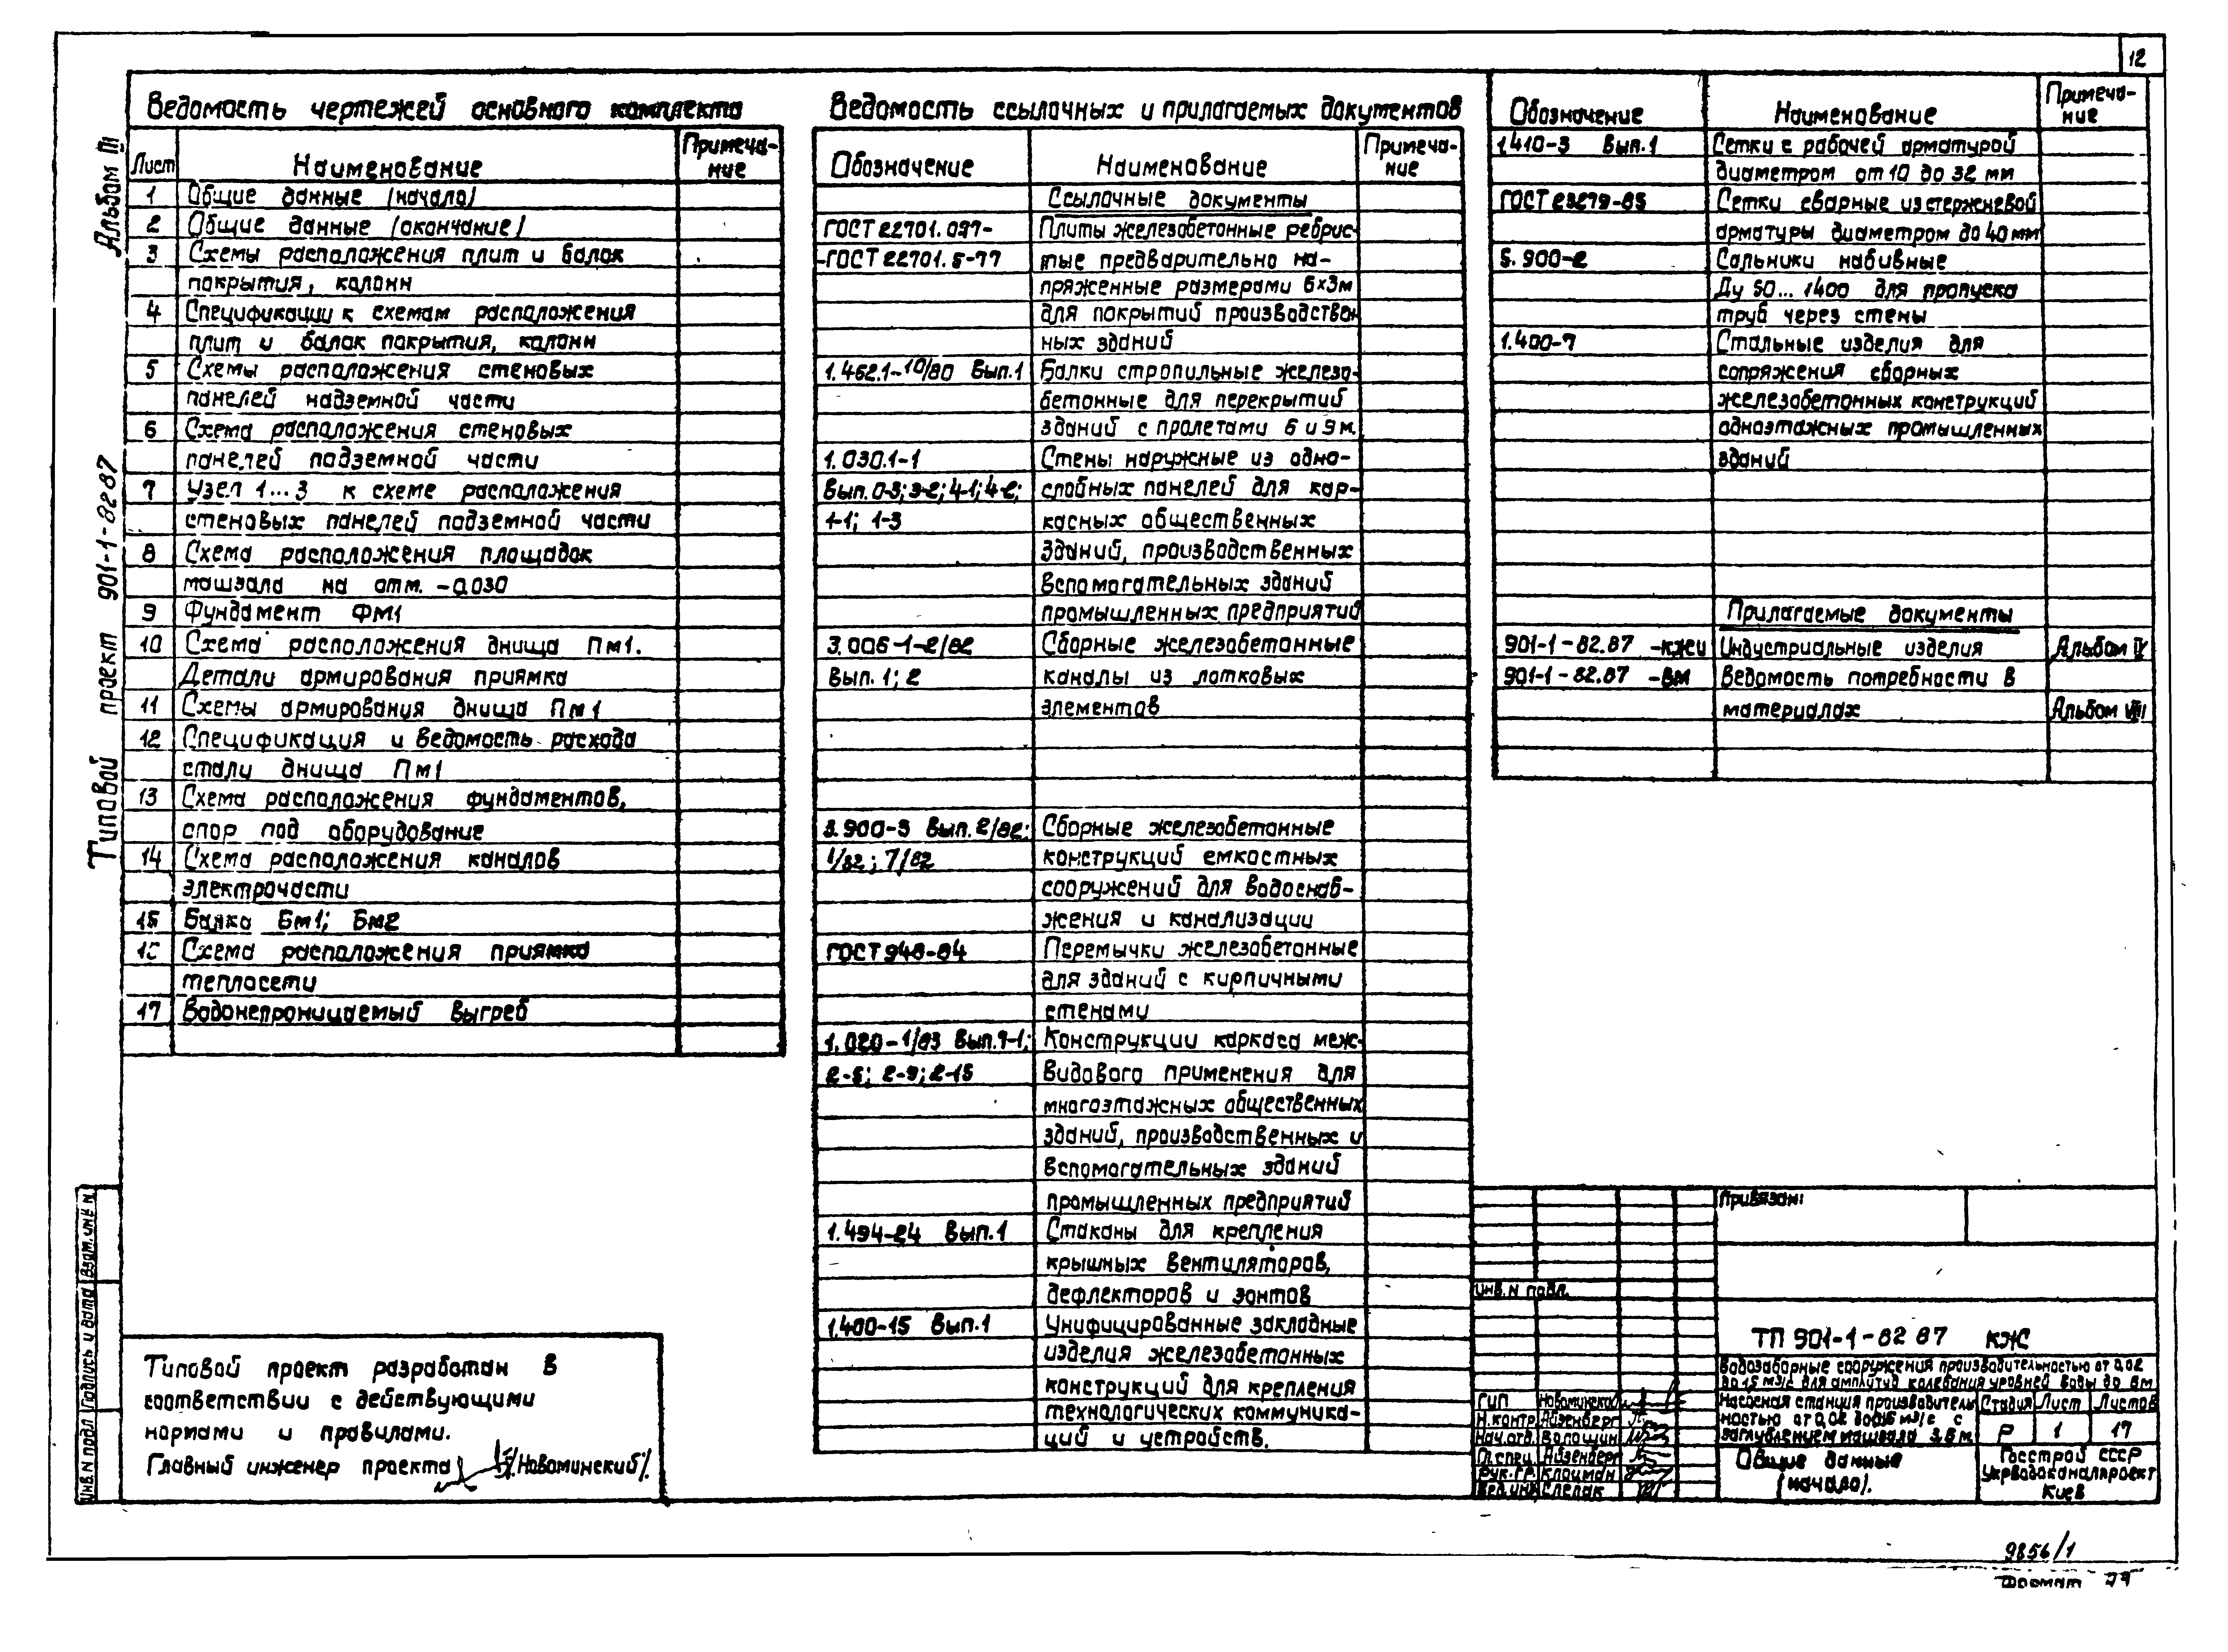 12
Альбом III
Типовой проект 901-1-82.87
Ведомость чертежей основного комплекта
Лист Наименование Примеча-
ние
1 Общие данные (начало)
2 Общие данные (окончание)
3 Схемы расположения плит и балок
покрытия, колонн
4 Спецификации к схемам расположения
плит и балок покрытия, колонн
5 Схемы расположения стеновых
панелей надземной части
6 Схема расположения стеновых
панелей подземной части
7 Узел 1...3 к схеме расположения
стеновых панелей подземной части
8 Схема расположения площадок
машзала на отм. -0.030
9 Фундамент ФМ1
10 Схема расположения днища Пм1.
Детали армирования приямка
11 Схемы армирования днища Пм1
12 Спецификация и ведомость расхода
стали днища Пм1
13 Схема расположения фундаментов,
опор под оборудование
14 Схема расположения каналов
электрочасти
15 Балка Бм1; Бм2
16 Схема расположения приямка
теплосети
17 Водонепроницаемый выгреб
Типовой проект разработан в
соответствии с действующими
нормами и правилами.
Главный инженер проекта /Новоминский/
Инв.N подл Подпись и дата Взам.инв N
Ведомость ссылочных и прилагаемых документов
Обозначение Наименование Примеча-
ние
Ссылочные документы
ГОСТ 22701.0-77- Плиты железобетонные ребрис-
-ГОСТ 22701.5-77 тые предварительно на-
пряженные размерами 6х3м
для покрытий производствен
ных зданий
1.462.1-10/80 Вып.1 Балки стропильные железо-
бетонные для перекрытий
зданий с пролетами 6 и 9м.
1.030.1-1 Стены наружные из одно-
Вып.0-3; 3-2; 4-1; 4-2; слойных панелей для кар-
1-1; 1-3 касных общественных
зданий, производственных
вспомогательных зданий
промышленных предприятий
3.006-1-2/82 Сборные железобетонные
Вып. 1; 2 каналы из лотковых
элементов
3.900-3 Вып. 2/82; Сборные железобетонные
1/82; 7/82 конструкций емкостных
сооружений для водоснаб-
жения и канализации
ГОСТ 948-84 Перемычки железобетонные
для зданий с кирпичными
стенами
1.020-1/83 Вып.9-1; Конструкции каркаса меж-
2-5; 2-9; 2-15 видового применения для
многоэтажных общественных
зданий, производственных и
вспомогательных зданий
промышленных предприятий
1.494-24 Вып.1 Стаканы для крепления
крышных вентиляторов,
дефлекторов и зонтов
1.400-15 Вып.1 Унифицированные закладные
изделия железобетонных
конструкций для крепления
технологических коммуника-
ций и устройств.
Обозначение Наименование Примеча-
ние
1.410-3 Вып.1 Сетки с рабочей арматурой
диаметром от 10 до 32 мм
ГОСТ 23279-85 Сетки сварные из стержневой
арматуры диаметром до 40 мм
5.900-2 Сальники набивные
Ду 50... 1400 для пропуска
труб через стены
1.400-7 Стальные изделия для
сопряжения сборных
железобетонных конструкций
одноэтажных промышленных
зданий
Прилагаемые документы
901-1-82.87 -КЖИ Индустриальные изделия Альбом IV
901-1-82.87 -ВМ Ведомость потребности в
материалах Альбом VIII
Привязан:
Инв.N подл.
ТП 901-1-82 87 КЖ
Водозаборные сооружения производительностью от 0,02
до 15 м3/с для амплитуд колебания уровней воды до 6м
ГИП Новоминский
Н.контр. Айзенберг
Нач.отд. Волошин
Гл.спец. Айзенберг
Рук.гр. Клоцман
Вед.инж Слепак
Насосная станция производитель
ностью от 0,02 до 0,15 м3/с с
заглублением машзала 3,6 м
Стадия Лист Листов
Р 1 17
Общие данные
(начало).
Госстрой СССР
Укрводоканалпроект
Киев
9856/1
Формат